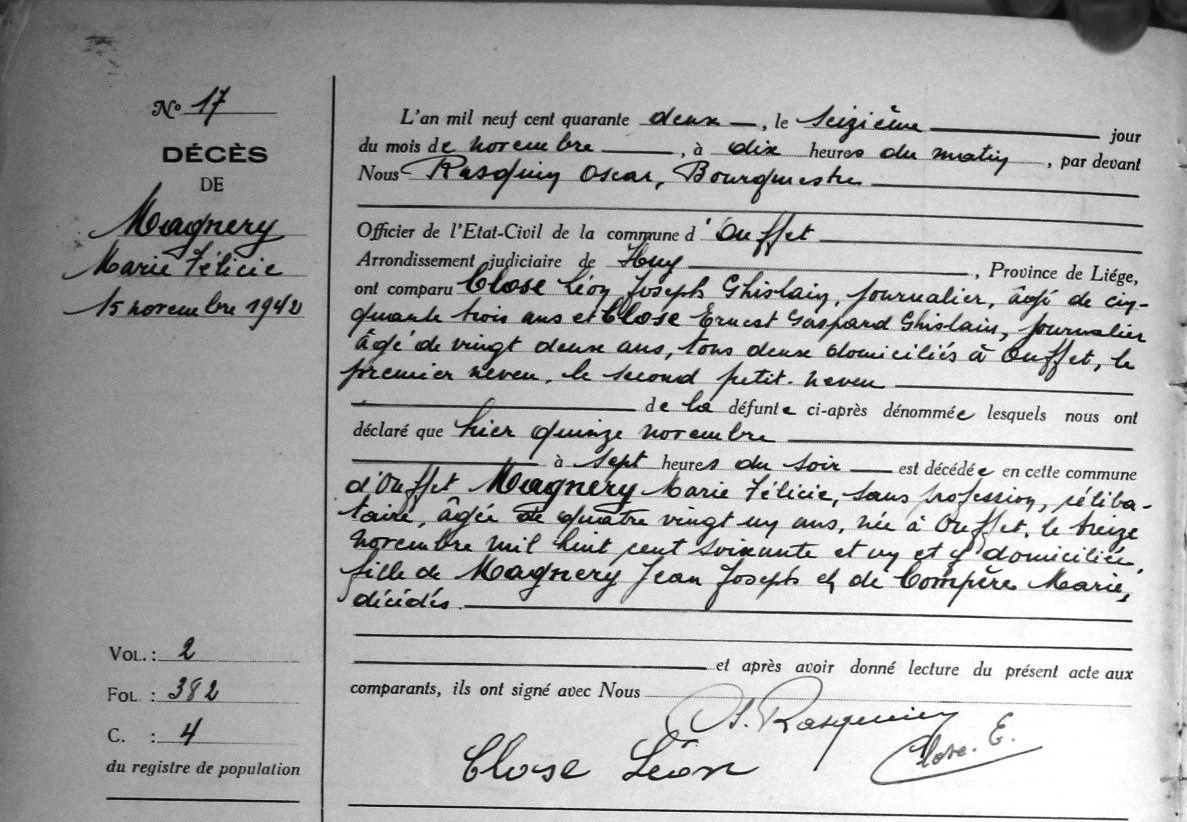 No 17
DÉCÈS
DE
Magnery
Marie Félicie
15 novembre 1942
Vol.: 2
Fol : 382
C. : 4
du registre de population
L'an mil neuf cent quarante deux, le seizième jour
du mois de novembre, à dix heures du matin, par devant
Nous Rasquin Oscar, Bourgmestre
Officier de l'Etat-Civil de la commune d'Ouffet
Arrondissement judiciaire de Huy, Province de Liége,
ont comparu Close Léon Joseph Ghislain, journalier, âgé de cin-
quante trois ans et Close Ernest Gaspard Ghislain, journalier
âgé de vingt deux ans, tous deux domiciliés à Ouffet, le
premier neveu, le second petit-neveu
de la défunte ci-après dénommée lesquels nous ont
déclaré que hier quinze novembre
à sept heures du soir est décédée en cette commune
d'Ouffet Magnery Marie Félicie, sans profession, céliba-
taire, âgée de quatre vingt un ans, née à Ouffet, le treize
novembre mil huit cent soixante et un et y domiciliée,
fille de Magnery Jean Joseph et de Compère Marie,
décédés.
et après avoir donné lecture du présent acte aux
comparants, ils ont signé avec Nous
O. Rasquin
Close Léon
Close. E.